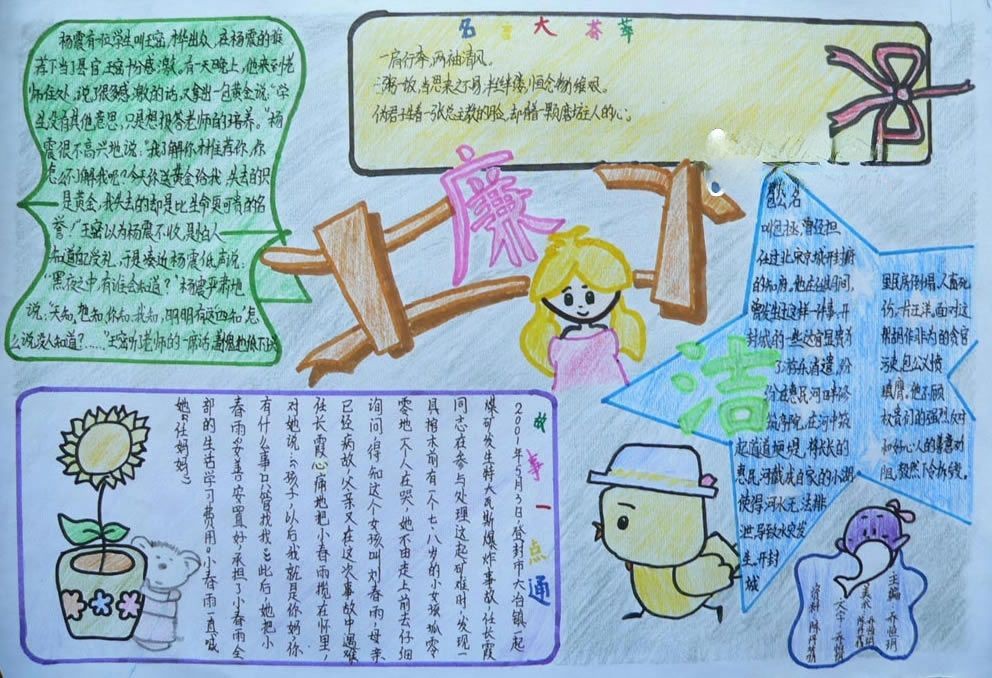 杨震有一位学生叫王密,才华出众,在杨震的推
荐下当了县官,王密十分感激。有一天晚上,他来到老
师住处,说了很多感激的话,又拿出一包黄金说:“学
生没有其他意思,只是想报答老师的培养。”杨
震很不高兴地说:“我了解你才推荐你,你
怎么不了解我呢?今天你送黄金给我,失去的只
是黄金,我失去的却是比生命更可贵的名
誉!”王密以为杨震不收,是怕人
知道他受礼,于是凑近杨震低声说:
“黑夜之中有谁会知道?”杨震严肃地
说:“天知,地知,你知,我知,明明有这四知,怎
么说没人知道?……”王密听了老师的一席话,羞愧地低下头
名言大荟萃
一肩行李,两袖清风。
伪君子生着一张总主教的脸,却有着一颗磨坊主人的心。
廉
洁
包公名
叫包拯,曾经担
任过北宋京城开封府
的知府,他在任期间,
曾发生过这样一件事,开
封城的一些达官显贵为
了游乐消遣,纷
纷在惠民河畔修
筑亭院,在河中筑
起道道埂堤,将长的
惠民河截成自家的小湖
使得河水无法排
泄,导致水灾发
生。开封
城
里瓦房倒塌、人畜死
伤,一片汪洋。面对这
帮胡作非为的贪官
污吏,包公义愤
填膺。他不顾
权贵们的强烈反对
和好心人的善意劝
阻,毅然下令拆钱。
故事一点通
2001年5月3日登封市大冶镇一起
煤矿发生特大瓦斯爆炸事故,任长霞
同志在参与处理这起矿难时,发现一
具棺木前有一个七八岁的小女孩孤零
零地一个人在哭,她不由走上前去仔细
询问,得知这个女孩叫刘春雨,母亲
已经病故,父亲又在这次事故中遇难
任长霞心痛地把小春雨揽在怀里,
对她说:“孩子,以后我就是你妈,你
有什么事只管找我”。此后,她把小
春雨妥善安置好,承担了小春雨全
部的生活学习费用。小春雨一直喊
她“任妈妈”
主编:乔恒玥
美术:乔恒玥